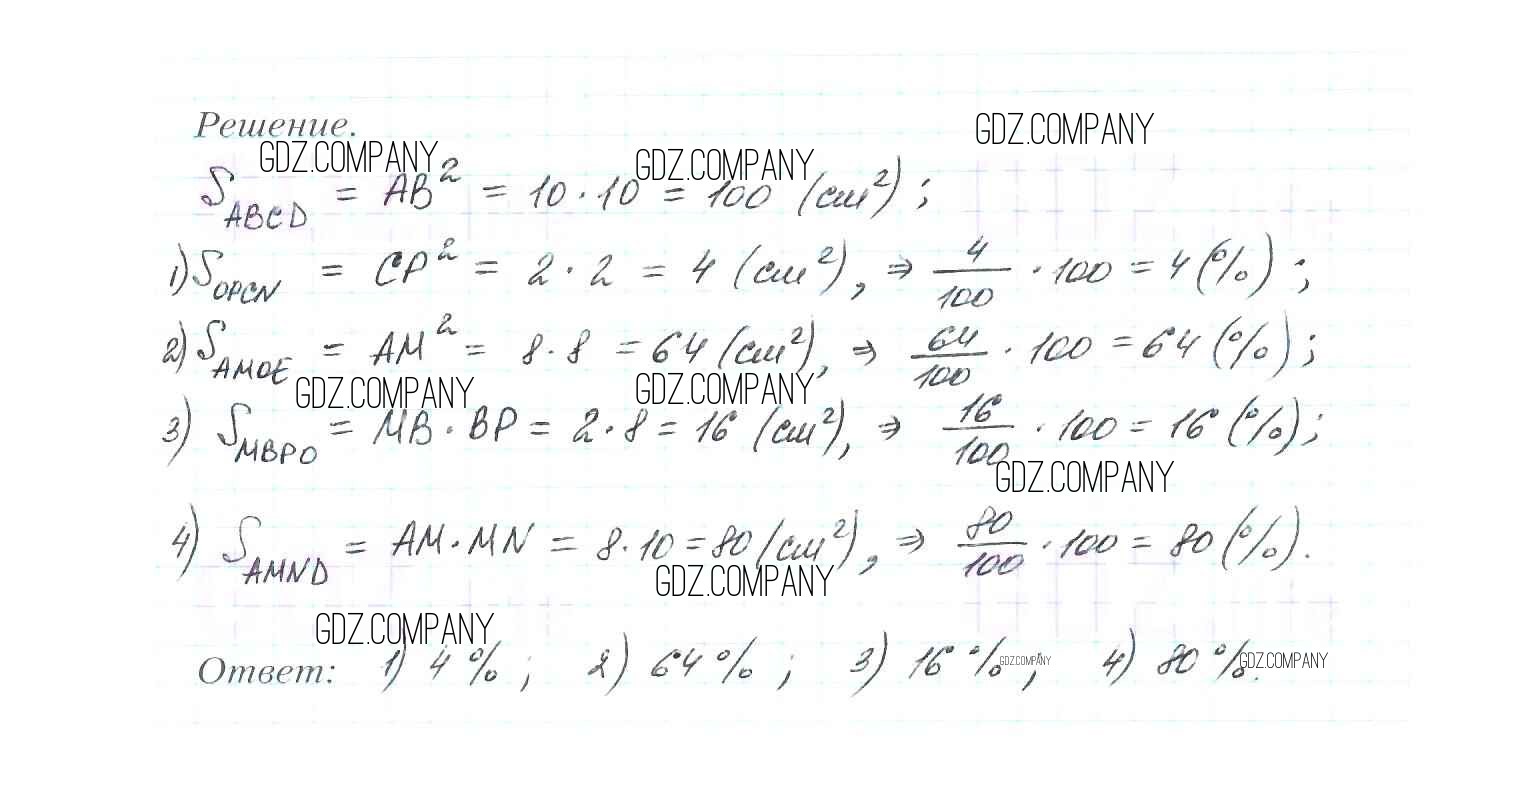 Решение.
GDZ.COMPANY
GDZ.COMPANY
GDZ.COMPANY
S_ABCD = AB² = 10 · 10 = 100 (см²) ;
1) S_OPCN = CP² = 2 · 2 = 4 (см²), ⇒ 4/100 · 100 = 4 (%) ;
2) S_AMOE = AM² = 8 · 8 = 64 (см²), ⇒ 64/100 · 100 = 64 (%) ;
GDZ.COMPANY
GDZ.COMPANY
3) S_MBPO = MB · BP = 2 · 8 = 16 (см²), ⇒ 16/100 · 100 = 16 (%) ;
GDZ.COMPANY
4) S_AMND = AM · MN = 8 · 10 = 80 (см²), ⇒ 80/100 · 100 = 80 (%).
GDZ.COMPANY
GDZ.COMPANY
Ответ: 1) 4 % ; 2) 64 % ; 3) 16 % ; 4) 80 %.
GDZ.COMPANY
GDZ.COMPANY